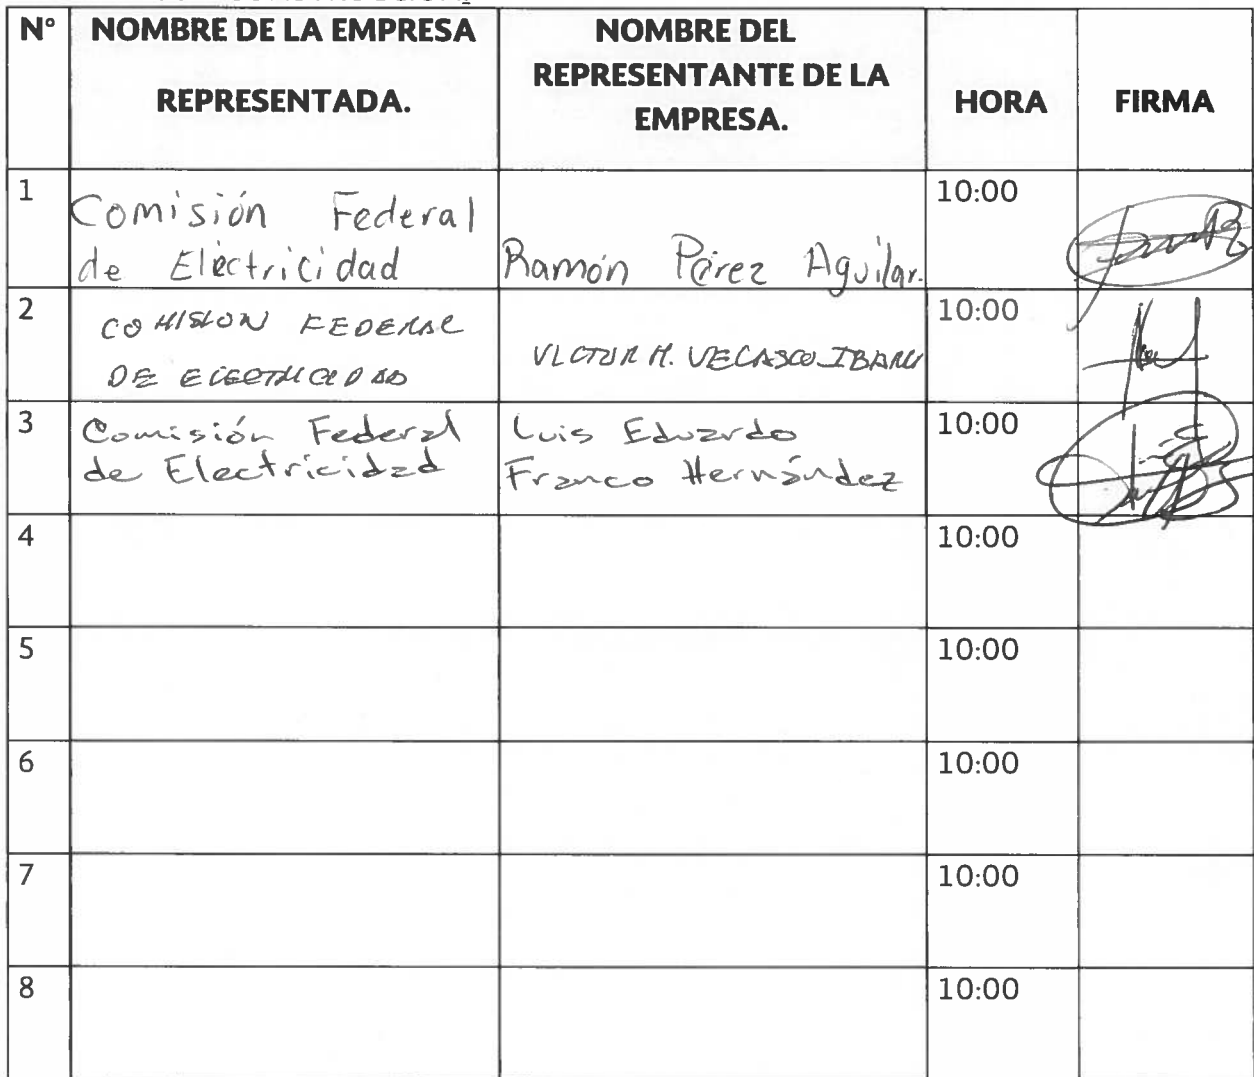 N° NOMBRE DE LA EMPRESA REPRESENTADA. NOMBRE DEL REPRESENTANTE DE LA EMPRESA. HORA FIRMA
1 Comisión Federal 10:00
de Electricidad Ramón Pérez Aguilar.
2 COMISION FEDERAL 10:00
DE ELECTRICIDAD VICTOR M. VELASCO
3 Comisión Federal Luis Eduardo 10:00
de Electricidad Franco Hernández
4 10:00
5 10:00
6 10:00
7 10:00
8 10:00